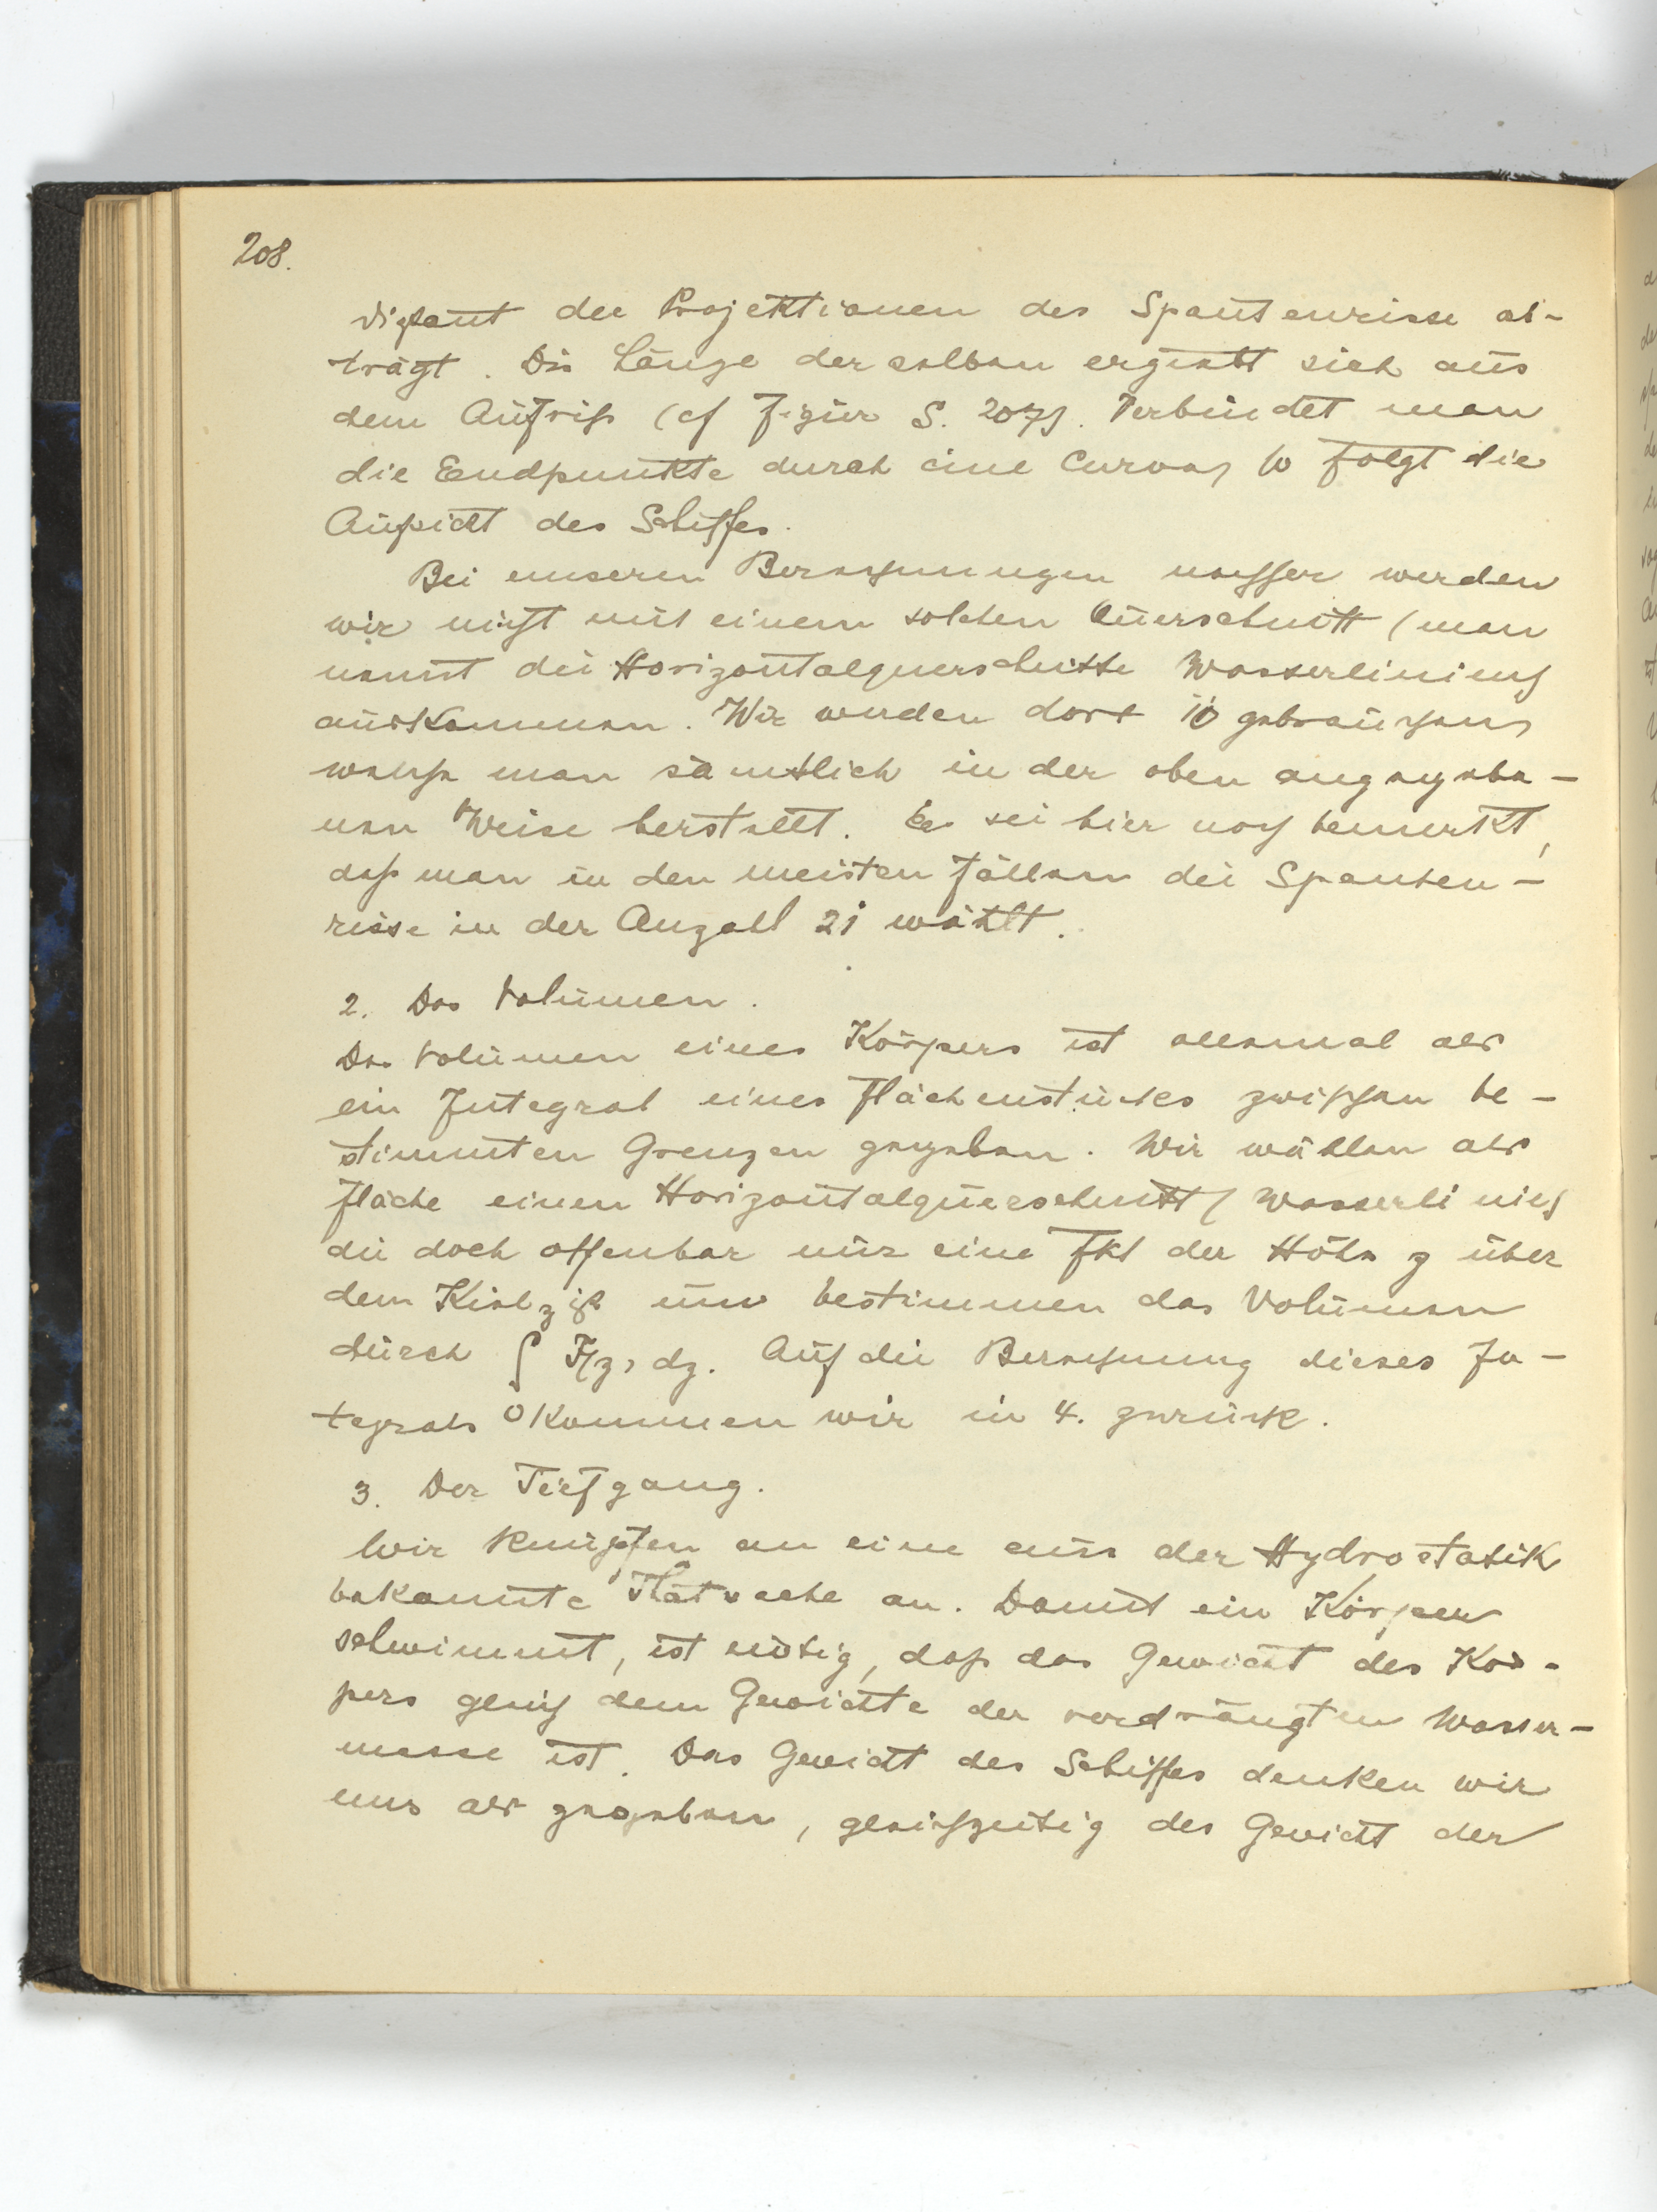 208.
distant die Projektionen des Spantenrisse ab-
trägt. Die Länge derselben ergiebt sich aus
dem Aufriß (cf Figur S. 207). Verbindet man
die Endpunkte durch eine Curve, so folgt die
Aufsicht des Schiffes.
Bei unseren Berechnungen nachher werden
wir nicht mit einem solchen Querschnitt (man
nennt die Horizontalquerschnitte Wasserlinien)
auskommen. Wir werden dort 10 gebrauchen,
welche man sämtlich in der oben angegebe-
nen Weise herstellt. Es sei hier noch bemerkt,
daß man in den meisten Fällen die Spanten-
risse in der Anzahl 21 wählt.
2. Das Volumen.
Das Volumen eines Körpers ist allemal als
ein Integral eines Flächenstückes zwischen be-
stimmten Grenzen gegeben. Wir wählen als
Fläche einen Horizontalquerschnitt (Wasserlinie)
die doch offenbar nur eine Fkt der Höhe z über
dem Kiel ist und bestimmen das Volumen
durch ∫₀ᶻ F(z) dz. Auf die Berechnung dieses In-
tegrals kommen wir in 4. zurück.
3. Der Tiefgang.
Wir knüpfen an eine aus der Hydrostatik
bekannte Thatsache an. Damit ein Körper
schwimmt, ist nötig, daß das Gewicht des Kör-
pers gleich dem Gewichte der verdrängten Wasser-
masse ist. Das Gewicht des Schiffes denken wir
uns als gegeben, gleichzeitig des Gewicht der